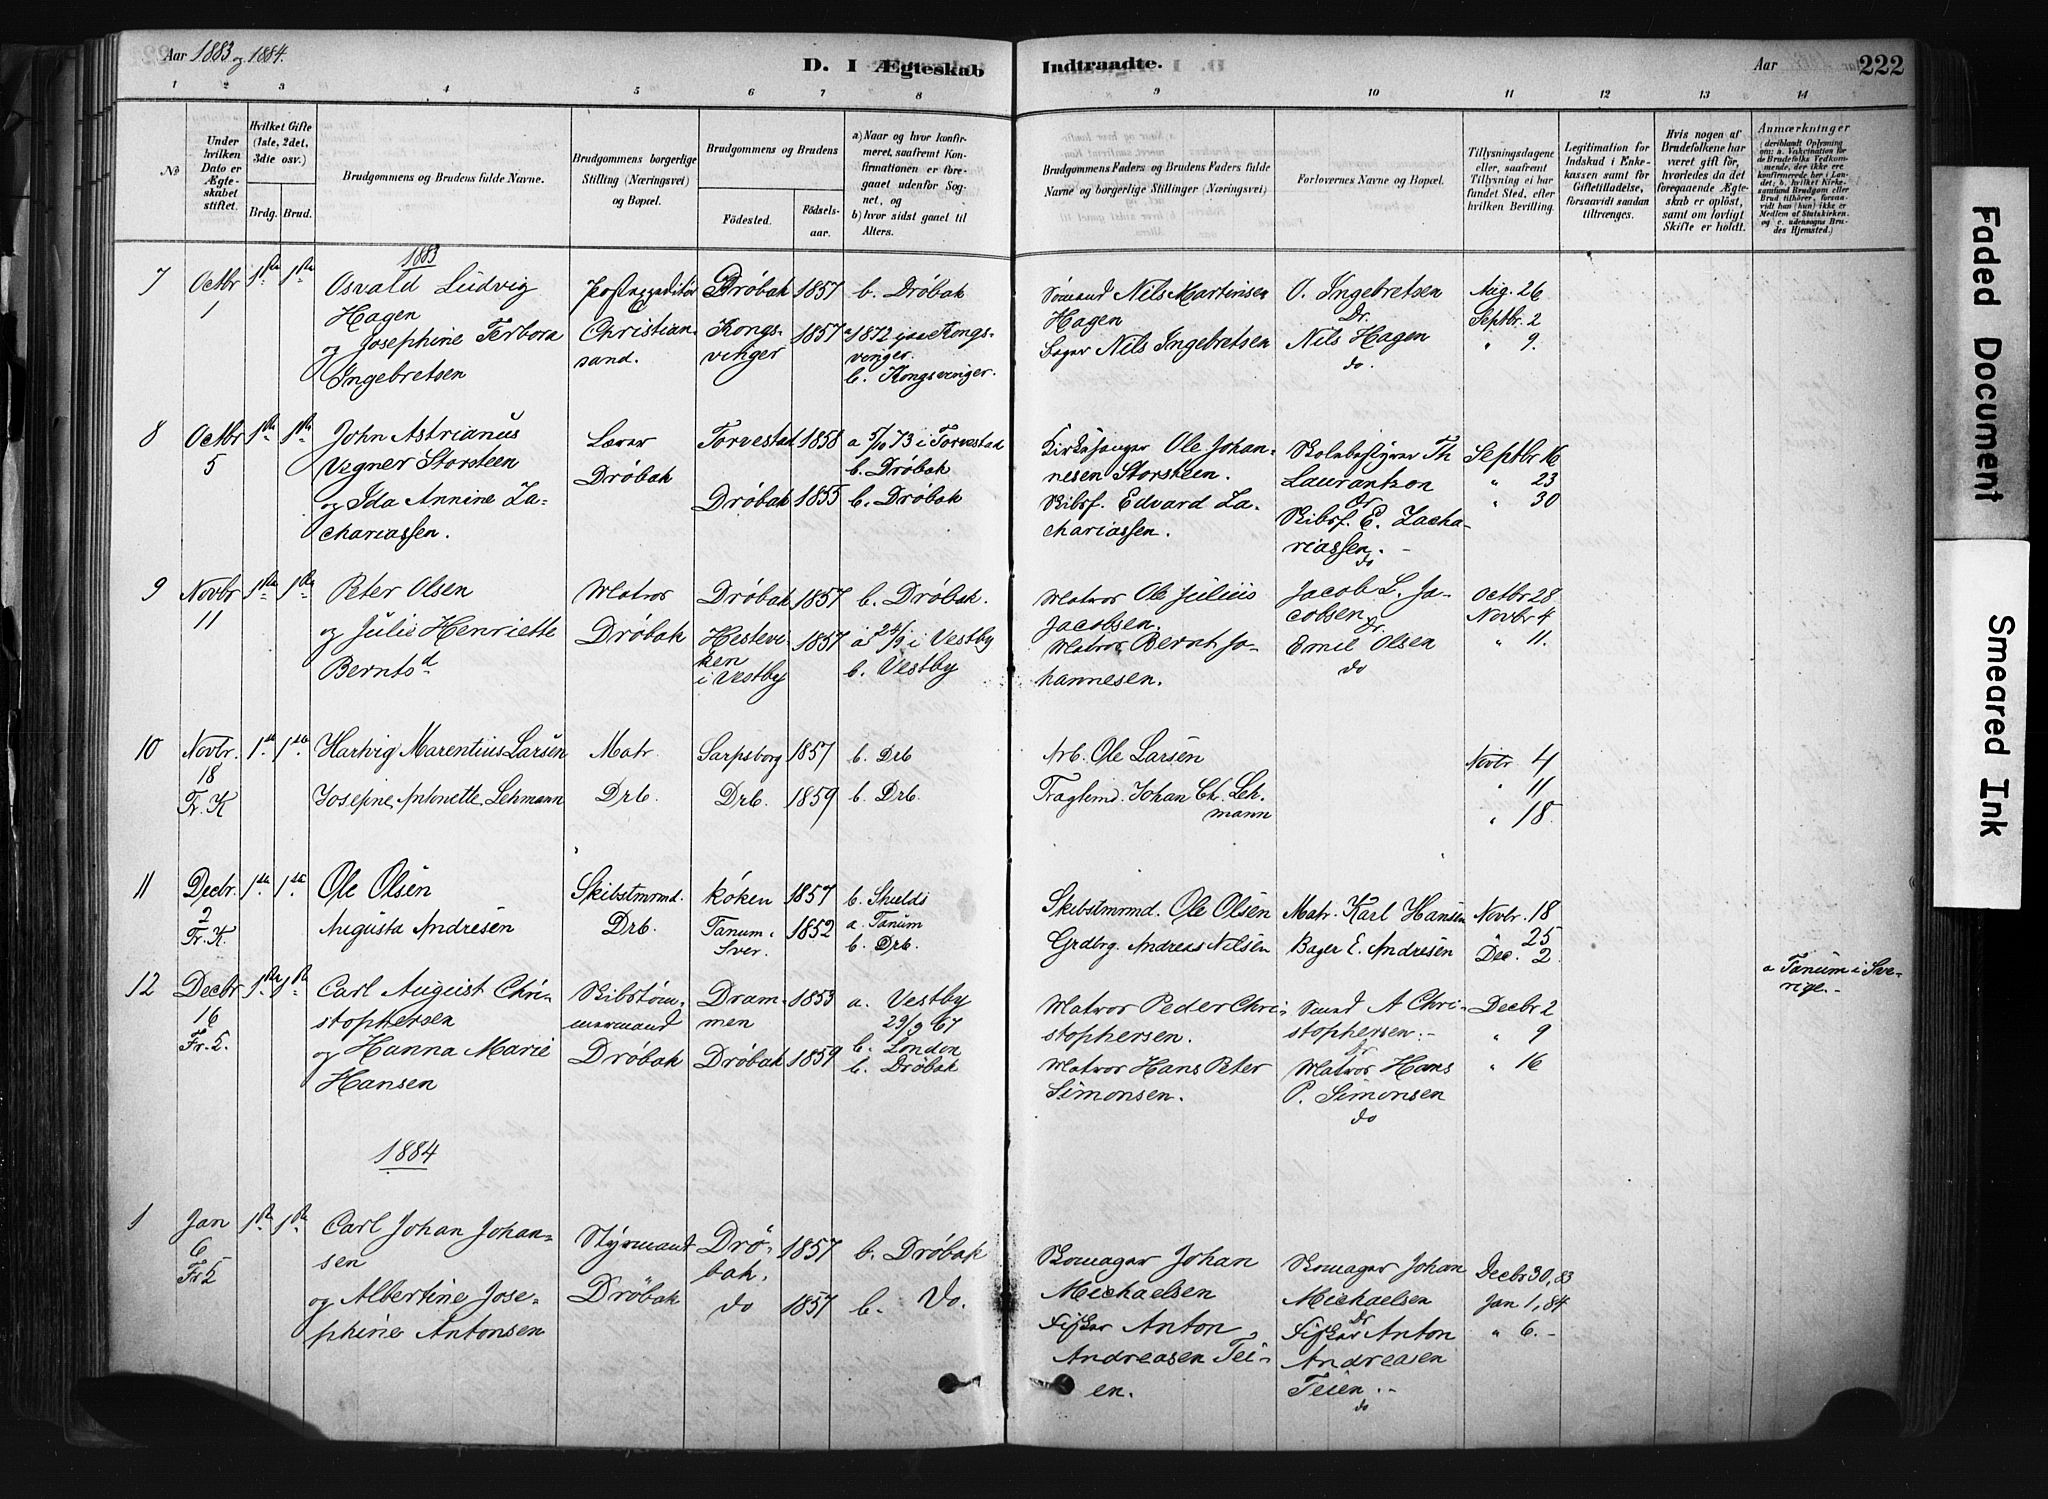 Aar 1883 og 1884.
D. I Ægteskab Indtraadte.
Aar 222
1 2 3 4 5 6 7 8 9 10 11 12 13 14
No
Under hvilken Dato er Ægteskabet stiftet.
Hvilket Gifte (1ste, 2det, 3die osv.)
Brdg. Brud.
Brudgommens og Brudens fulde Navne.
Brudgommens borgerlige Stilling (Næringsvei) og Bopæl.
Brudgommens og Brudens
Fødested.
Fødselsaar.
a) Naar og hvor konfirmeret, saafremt Konfirmationen er foregaaet udenfor Sognet, og
b) hvor sidst gaaet til Alters.
Brudgommens Faders og Brudens Faders fulde Navne og borgerlige Stillinger (Næringsvei).
Forlovernes Navne og Bopæl.
Tillysningsdagene eller, saafremt Tillysning ei har fundet Sted, efter hvilken Bevilling.
Legitimation for Indskud i Enkekassen samt for Giftetilladelse, forsaavidt saadan tiltrænges.
Hvis nogen af Brudefolkene har været gift før, hvorledes da det foregaaende Ægteskab er opløst, samt om lovligt Skifte er holdt.
Anmærkninger (deriblandt Oplysning om: a. Vakcination for de Brudefolks Vedkommende, der ikke ere konfirmerede her i Landet; b. hvilket Kirkesamfund Brudgom eller Brud tilhører, forsaavidt han (hun) ikke er Medlem af Statskirken, og c. udensogns Brudes Hjemsted.)
1883
7 Octbr 1 1ste 1ste Osvald Ludvig Hagen
og Josephine Terbora Ingebretsen
Postexpeditør Christiansand.
Drøbak 1857 b. Drøbak
Kongsvinger 1857 a 1872 paa Kongsvinger.
b. Kongsvinger.
Sømand Nils Martinsen Hagen
Bager Nils Ingebretsen
O. Ingebretsen Dr.
Nils Hagen do.
Aug. 26
Septbr. 2
" 9.
8 Octbr 5 1ste 1ste John Astrianus Vegner Storsteen
og Ida Annine Zachariassen.
Lærer Drøbak
Torvestad 1858 a 5/10 73 i Torvestad
b. Drøbak
Drøbak 1855 b. Drøbak
Kirkesanger Ole Johannesen Storsteen.
Skibsf. Edvard Zachariassen.
Skolebestyrer Th Laurantzon Dr
Skibsf. E. Zachariassen. do
Septbr 16
" 23
" 30
9 Novbr 11 1ste 1ste Peter Olsen
og Julie Henriette Berntsd
Matros Drøbak
Drøbak 1857 b. Drøbak.
Hesteviken i Vestby 1857 a 24/9 i Vestby
b. Vestby
Matros Ole Julius Jacobsen.
Matros Bernt Johannesen.
Jacob L. Jacobsen Dr.
Emil Olsen do
Octbr 28
Novbr 4
" 11.
10 Novbr. 18 Fr. K 1ste 1ste Hartvig Marentius Larsen
Josepine Antonette Lehmann
Matr. Drb.
Sarpsborg 1857 b. Drb
Drb. 1859 b. Drb.
Arb. Ole Larsen
Fragtemd. Johan Chr. Lehmann
Novbr 4
" 11
" 18
11 Decbr. 2 Fr. K. 1ste 1ste Ole Olsen
Augusta Andresen
Skibstmrmd. Drb.
Køken 1857 b. Shields
Tanum Sver. 1852 a. Tanum
b. Drb.
Skibstmrmd. Ole Olsen
Grdbrg. Andreas Nilsen
Matr. Karl Hansen
Bager E. Andresen
Novbr. 18
" 25
Dec. 2
a Tanum i Sverige.
12 Decbr 16 Fr. 5. 1ste 1ste Carl August Christophersen
og Hanna Marie Hansen
Skibstømmermand Drøbak
Drammen 1853 a. Vestby 29/9 67
b. London
Drøbak 1859 b. Drøbak
Matros Peder Christophersen.
Matros Hans Peter Simonsen.
Smed A Christophersen. Dr
Matros Hans P. Simonsen do
Decbr 2
" 9
" 16
1884
1 Jan 6 Fr 5 1ste 1ste Carl Johan Johansen
og Albertine Josephine Antonsen
Styrmand Drøbak
Drøbak. 1857 b. Drøbak
do 1857 b. Do.
Skomager Johan Michaelsen
Fisker Anton Andreasen Teien.
Skomager Johan Michaelsen Dr
Fisker Anton Andreasen Teien. do
Decbr 30, 83
Jan 1, 84
" 6.
Faded Document
Smeared Ink